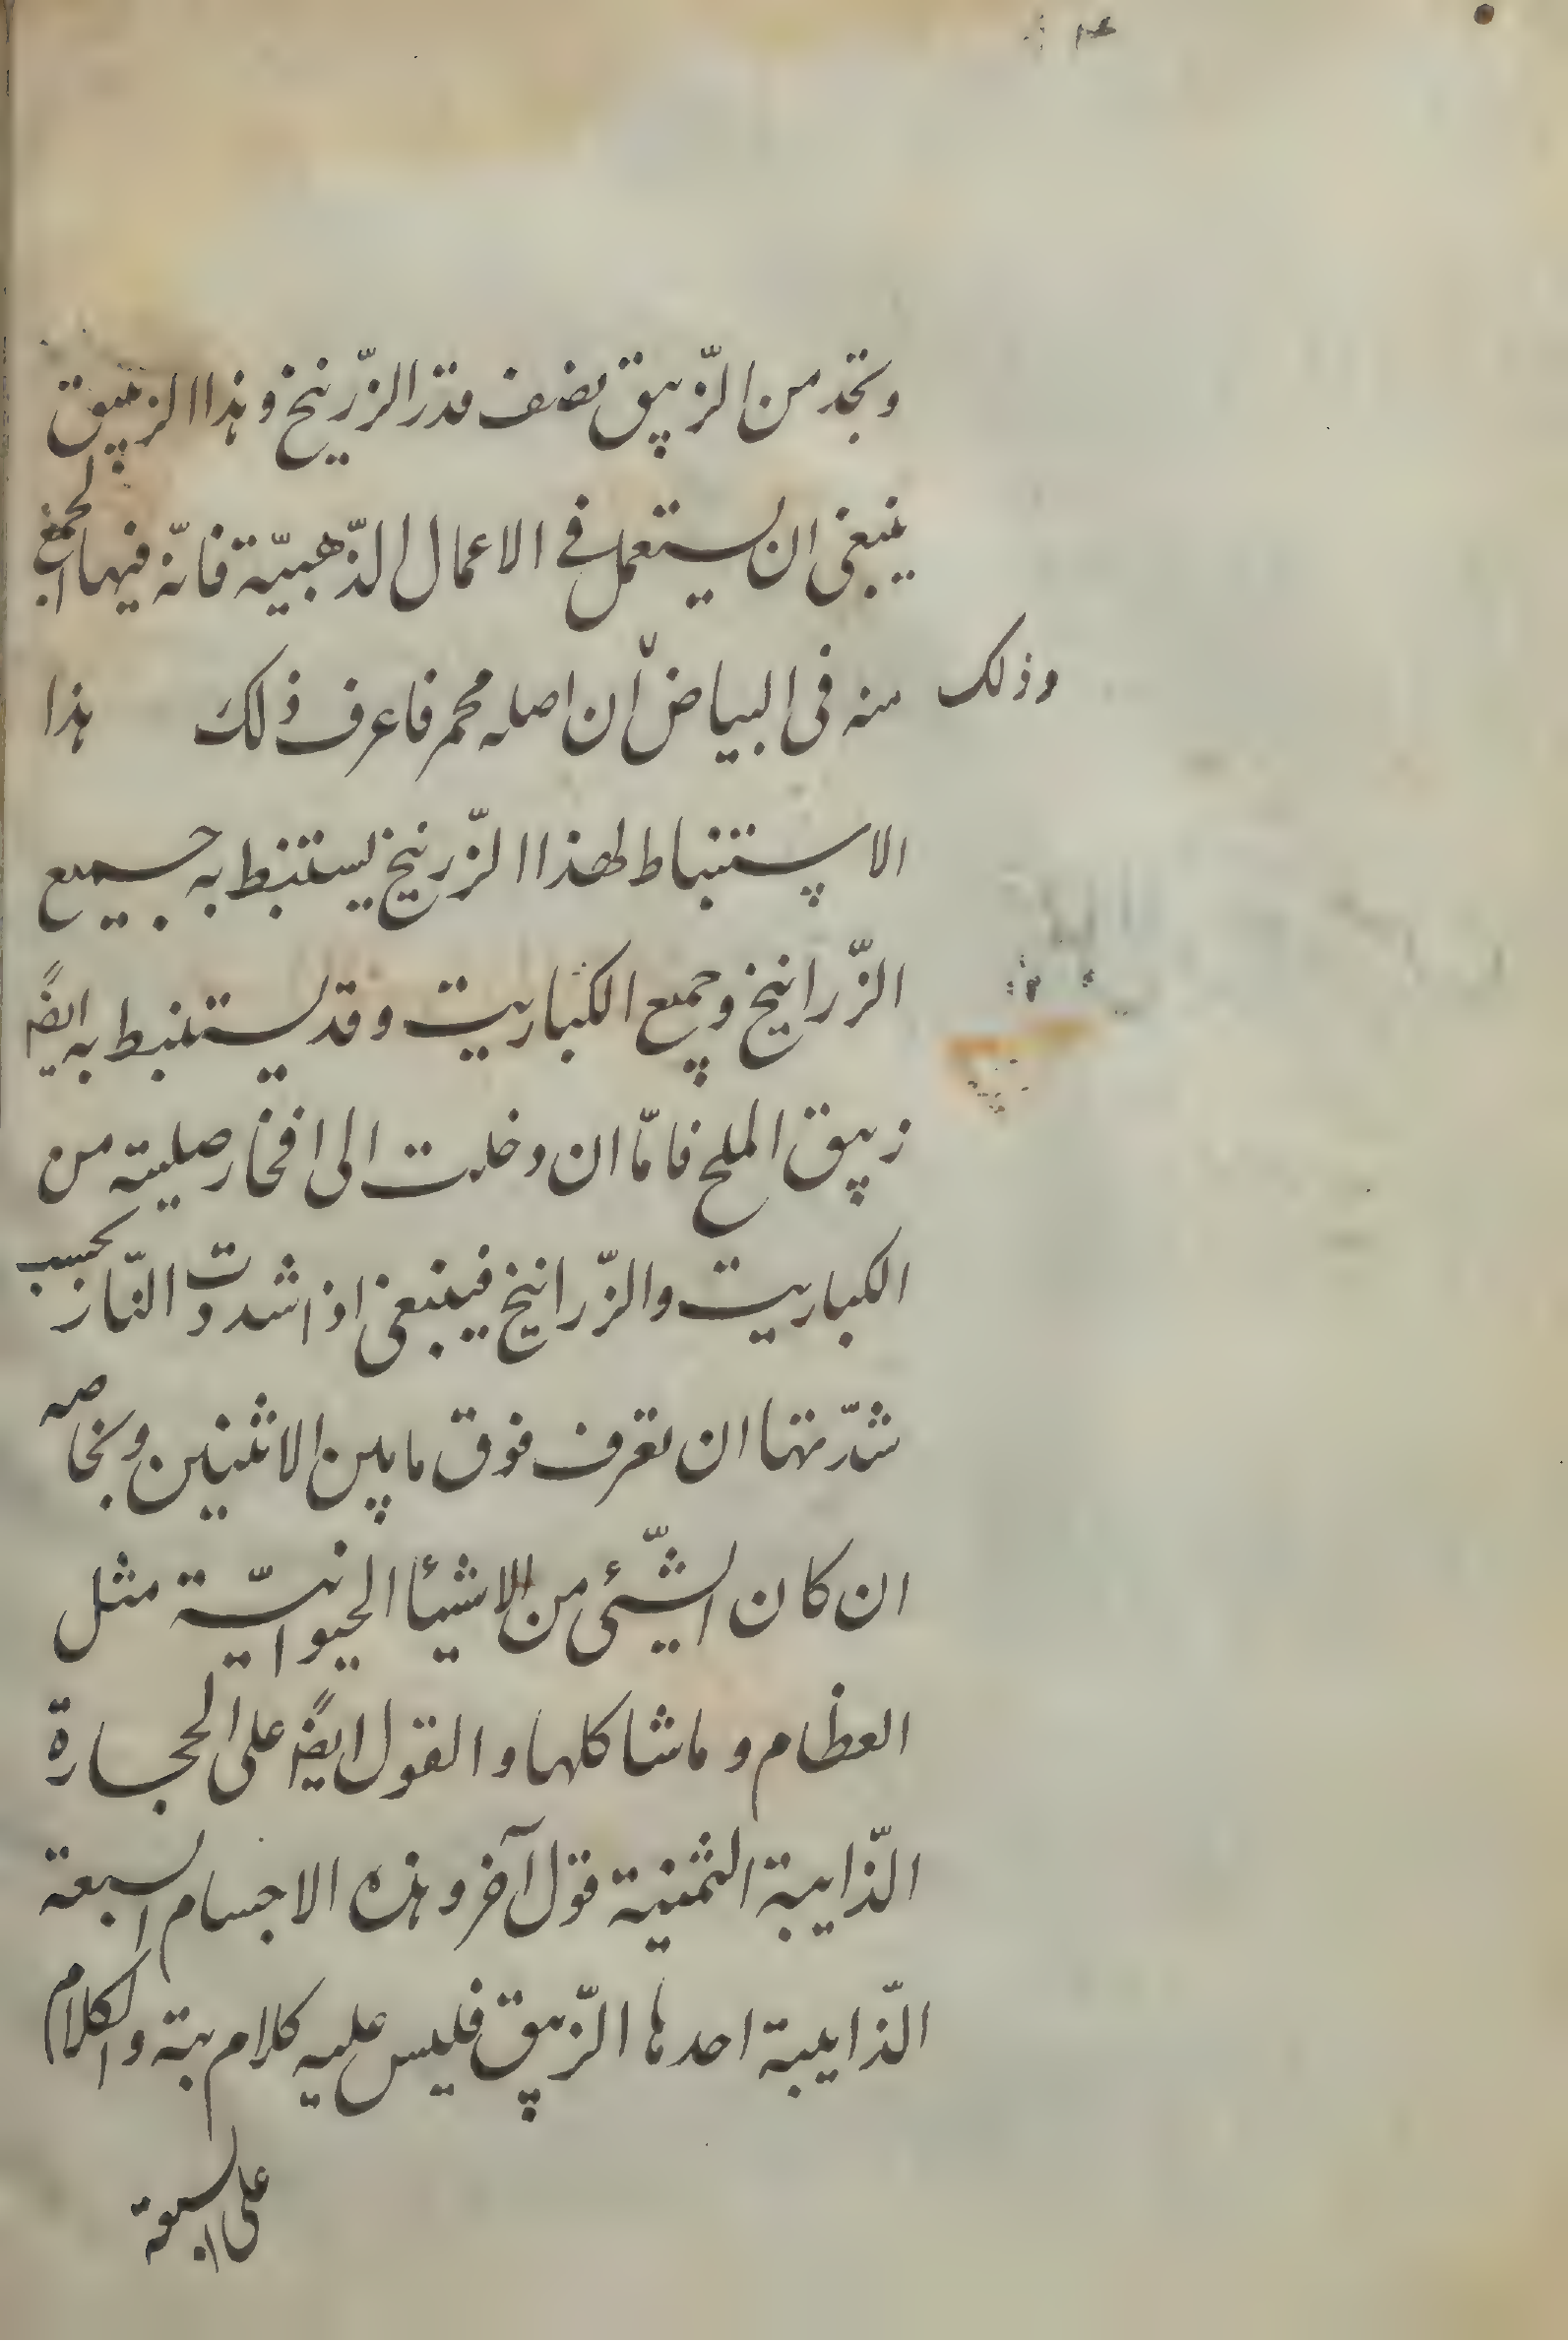 وتجد من الزّيبق نصف قدر الزّرنيخ وهذا الزيبق
ينبغى ان يستعمل فى الاعمال الذّهبيّة فانّه فيها انجع
منه فى البياض انّ اصله محمر فاعرف ذلك هذا
وذلك
الاستنباط لهذا الزّرنيخ يستنبط به جميع
الزّرانيخ وجميع الكباريت وقد يستنبط به ايضًا
زيبق الملح فامّا ان دخلت الى افخار صليته من
الكباريت والزّرانيخ فينبغى اذا شددت النّار بحسب
شدّتها ان تعرف فوق ما بين الاثنين وبخاصه
ان كان الشّيئ من الاشيأ الحيوانيّة مثل
العظام وما شاكلها والقول ايضًا على الحجارة
الذّايبة الثمنية قول آخر وهذه الاجسام السبعة
الذّايبة احدها الزّيبق فليس عليه كلام بتة والكلام
على السبعة